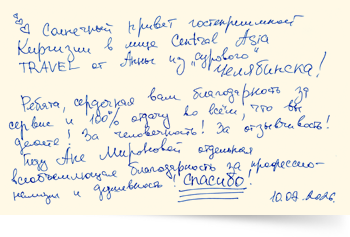 Солнечный привет гостеприимной
Киргизии в лице Central Asia
TRAVEL от Анны из "сурового"
Челябинска!
Ребята, сердечная вам благодарность за
сервис и 100% отдачу во всём, что вы
делаете! За человечность! За отзывчивость!
Гиду Ане Мироновой отдельная
всеобъемлющая благодарность за профессио-
нализм и душевность! Спасибо!